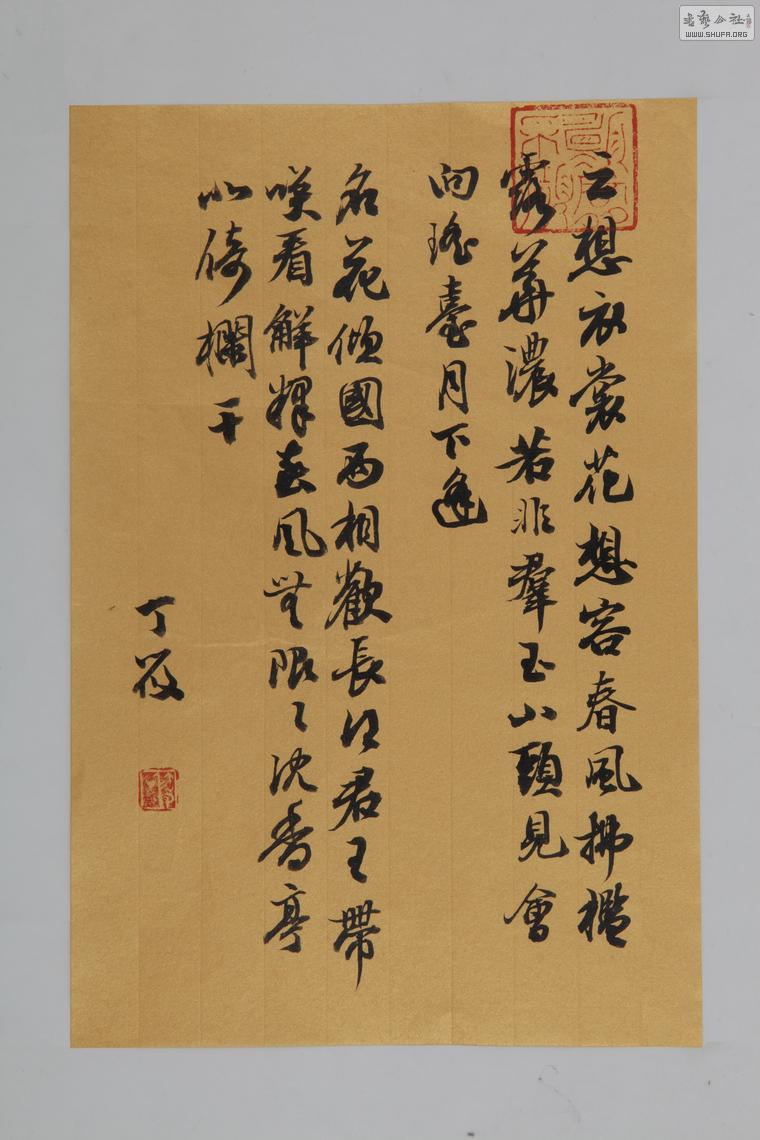 云想衣裳花想容春風拂檻
露華濃若非羣玉山頭見會
向瑤臺月下逢
名花傾國兩相歡長得君王帶
咲看解釋春風無限々沈香亭
北倚欄干
丁
書藝公社
WWW.SHUFA.ORG